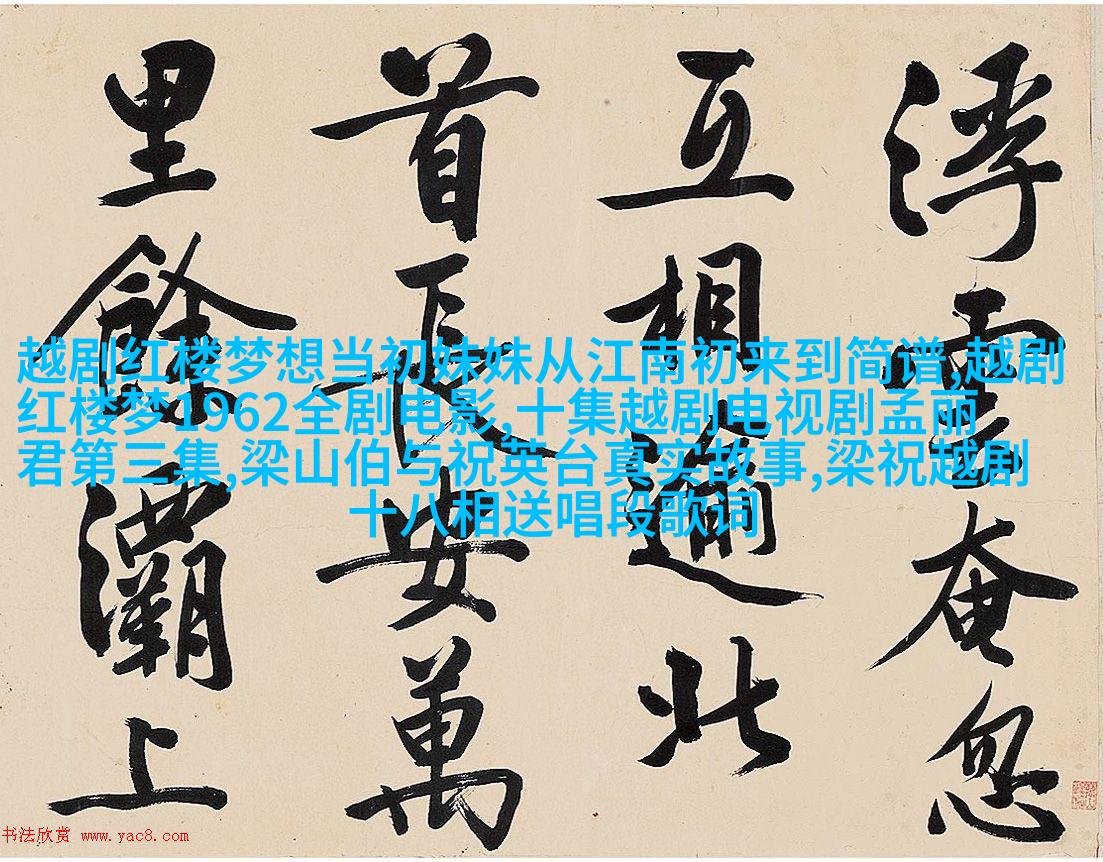 浮雲奄忽
互相逾北
首長安萬
里餘灞上
越剧红楼梦想当初妹妹从江南初来到简谱,越剧
红楼梦1962全剧电影,十集越剧电视剧孟丽
君第三集,梁山伯与祝英台真实故事,梁祝越剧
十八相送唱段歌词
书法欣赏 www.yac8.com